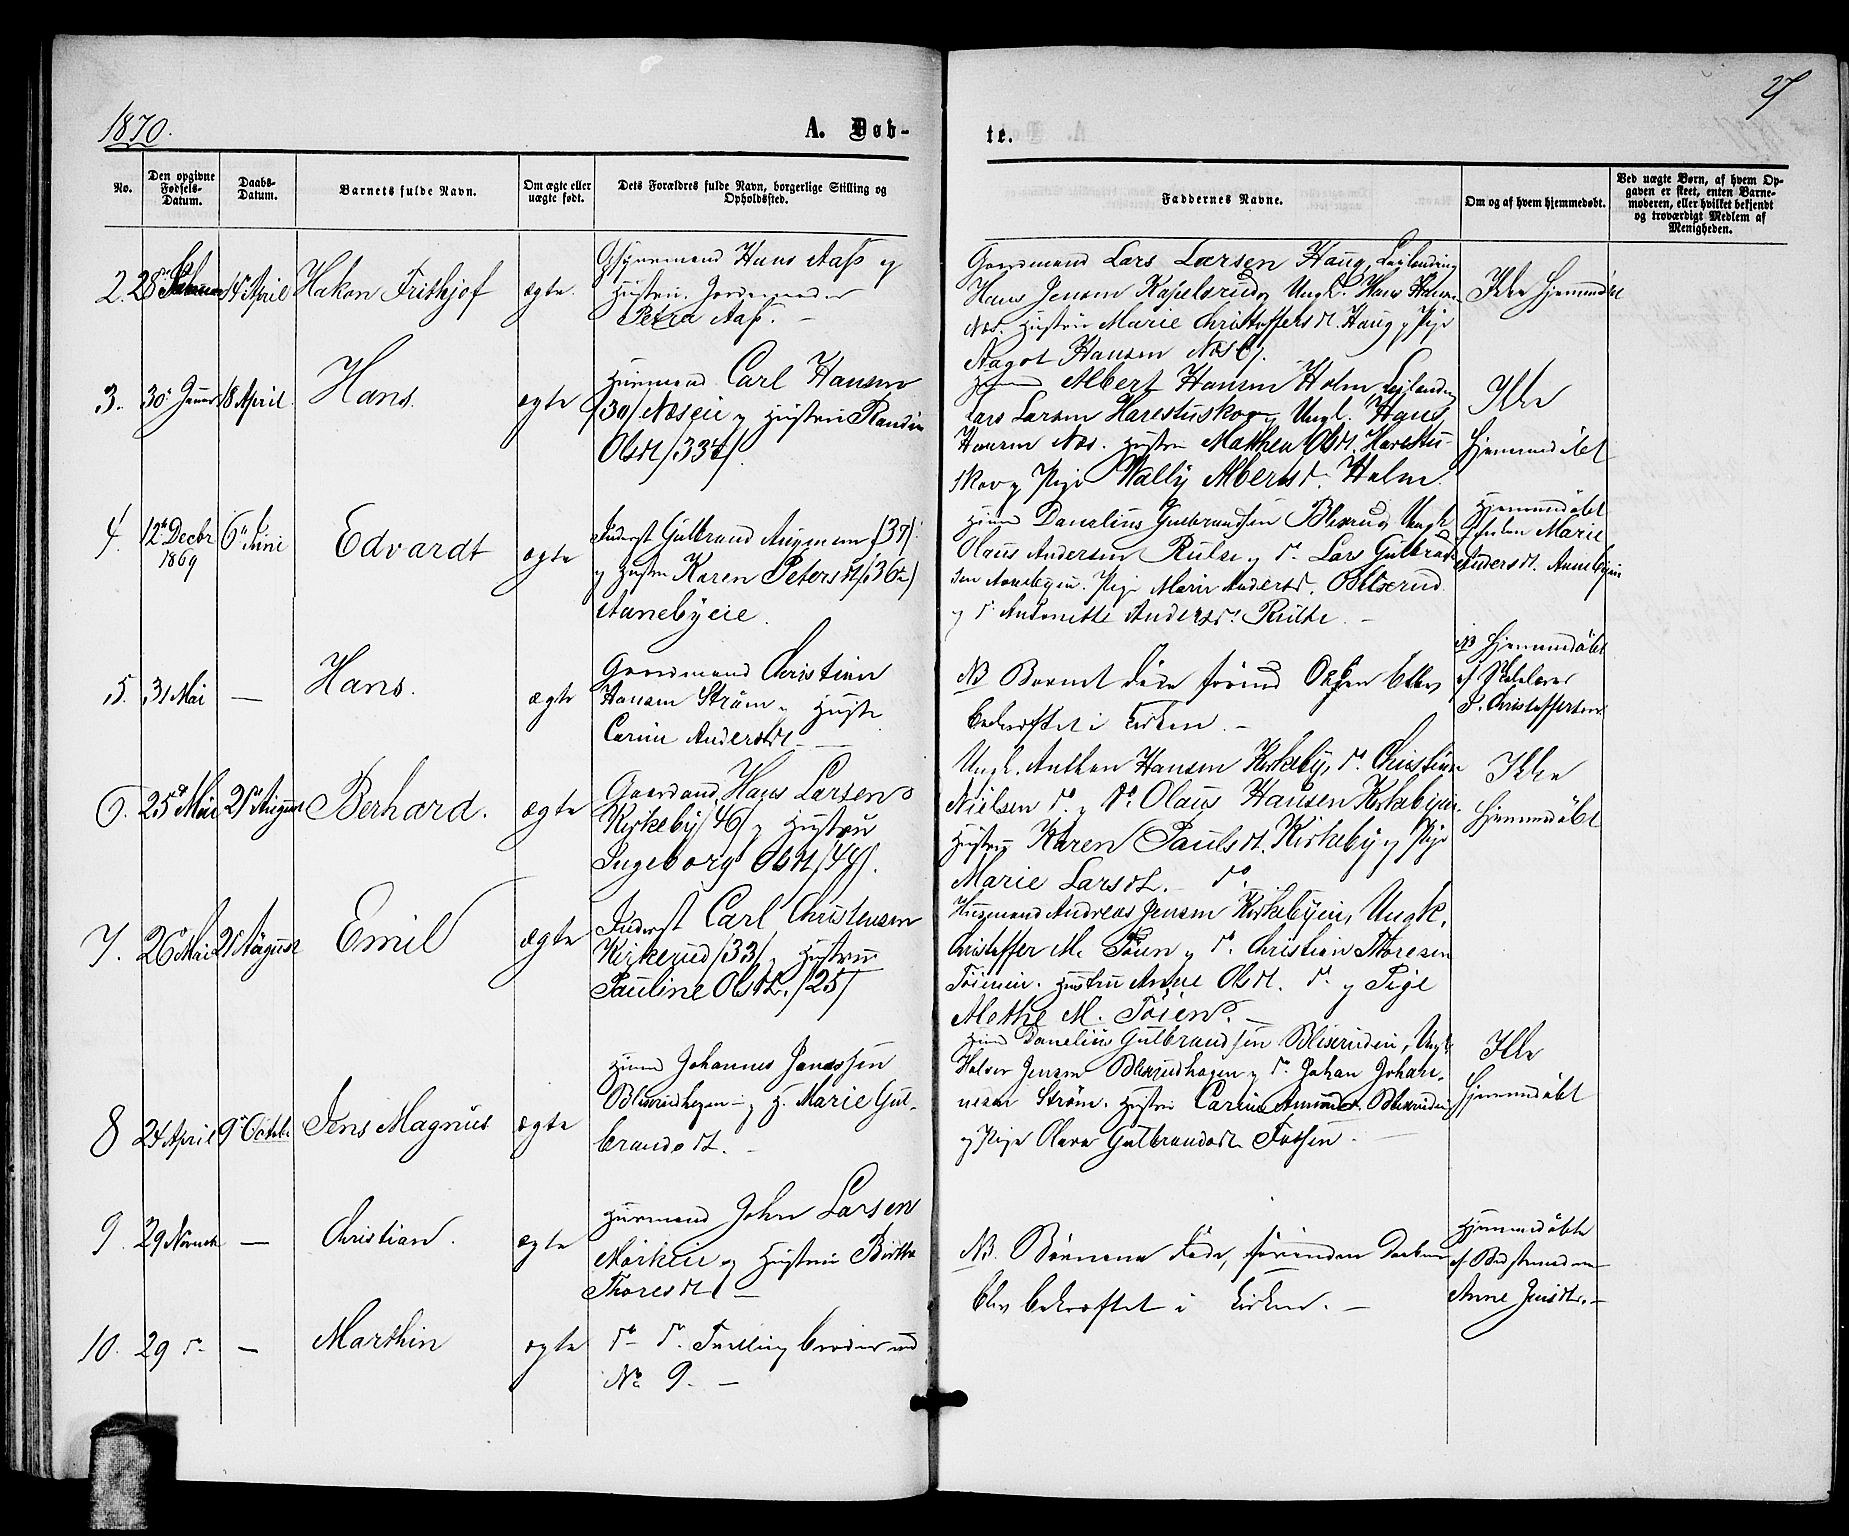 1870.
A. Døb-
te.
27
No.
Den opgivne Fødsels-Datum.
Daabs-Datum.
Barnets fulde Navn.
Om ægte eller uægte født.
Dets Forældres fulde Navn, borgerlige Stilling og Opholdssted.
Faddernes Navne.
Om og af hvem hjemmedøbt.
Ved uægte Børn, af hvem Op-
gaven er skeet, enten Barne-
moderen, eller hvilket bekjendt
og troværdigt Medlem af
Menigheden.
2. 28 April Hakon Frithjof ægte.
Hans Aass og
Hustru Jordemoder
Petra Aass. —
Gaardmand Lars Larsen Haug,
Hans Jensen Kapelsrud, Ungk. Hans Hansen
Næs. Hustru Marie Christoffersdt. Haug og Pige
Aagot Hansen Næs
Ikke Hjemmedøbt
3. 30 Januar 18 April. Hans. ægte
Husmand Carl Hansen
/30/ Næseie og Hustru Randine
Olsdt /33/
Albert Hansen Holm,
Lars Larsen Harestuskov, Ungk. Hans
Hansen Næs. Hustru Mathea Olsdt. Harestu-
skov og Pige Wally Albertsd. Holm.
Ikke
Hjemmedøbt
4. 12te Decbr 1869 6te Juni Edvardt ægte
Inderst Gulbrand
og Hustru Karen Petersdt /36/
Aanebyeie.
Danelius Gulbrandsen Blixrud, Ungk.
Olaus Andersen Rulse og do. Lars Gulbrand-
sen Aanebyeie. Pige Marie Andersd. Blixrud
og do Antonette Andersd. Rulse. —
Hjemmedøbt
Marie
Andersdt. Aanebyeie
5. 31 Mai — Hans. ægte
Gaardmand Christian
Hansen Strøm og Hustru
Carine Andersdt —
NB Barnet døde førend blev
bekræftet i Kirken. —
NB Hjemmedøbt
af
Christoffersen
6. 25de Mai 21de August Berhard. ægte
Gaardmand Hans Larsen
Kirkeby /46/ og Hustru
Ingeborg Olsdt /44/.
Ungk. Anthon Hansen Kirkeby, do. Christian
Nielsen do. og do. Olaus Hansen Kirkebyeie.
Hustru Karen Paulsdt. Kirkeby og Pige
Marie Larsdt. — do.
Ikke
Hjemmedøbt
7. 26 Mai 21 August Emil ægte
Inderst Carl Christensen
Kirkerud /33/ og Hustru
Pauline Olsdt. /25/
Husmand Andreas Jensen Kirkebyeie, Ungk.
Christoffer M. Tøien og do. Christian Thoresen
Tøieneie. Hustru Anne Olsdt. do. og Pige
Alethe M. Tøien. —
8 24 April 9de October Jens Magnus ægte
Johannes
og H. Marie Gul-
brandsdt. —
Danelius Gulbrandsen, Ungk.
Halvor Jensen Blixrudhagen og do. Johan Johan-
nesen Strøm. Hustru Carine
og Pige Olava Gulbrandsdt. —
Ikke
Hjemmedøbt
9. 29 Novemb — Christian. ægte
Husmand John Larsen
Mørkeie og Hustru Birthe
Thoresdt. —
NB. Børnene døde, førend Daaben
blev bekræftet i Kirken. —
Hjemmedøbte
af Bedstemoderen
Anne. —
10. 29 do — Marthin ægte
do do. Tvillingbroder med
No 9. —